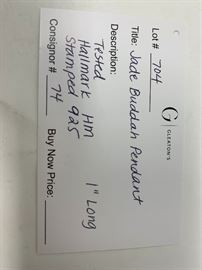 Lot # 704
G
GLEATON'S
Title: Jade Buddah Pendant
Description:
Tested 1" Long
Hallmark HM
Stamped 925
Consignor # 74 Buy Now Price: